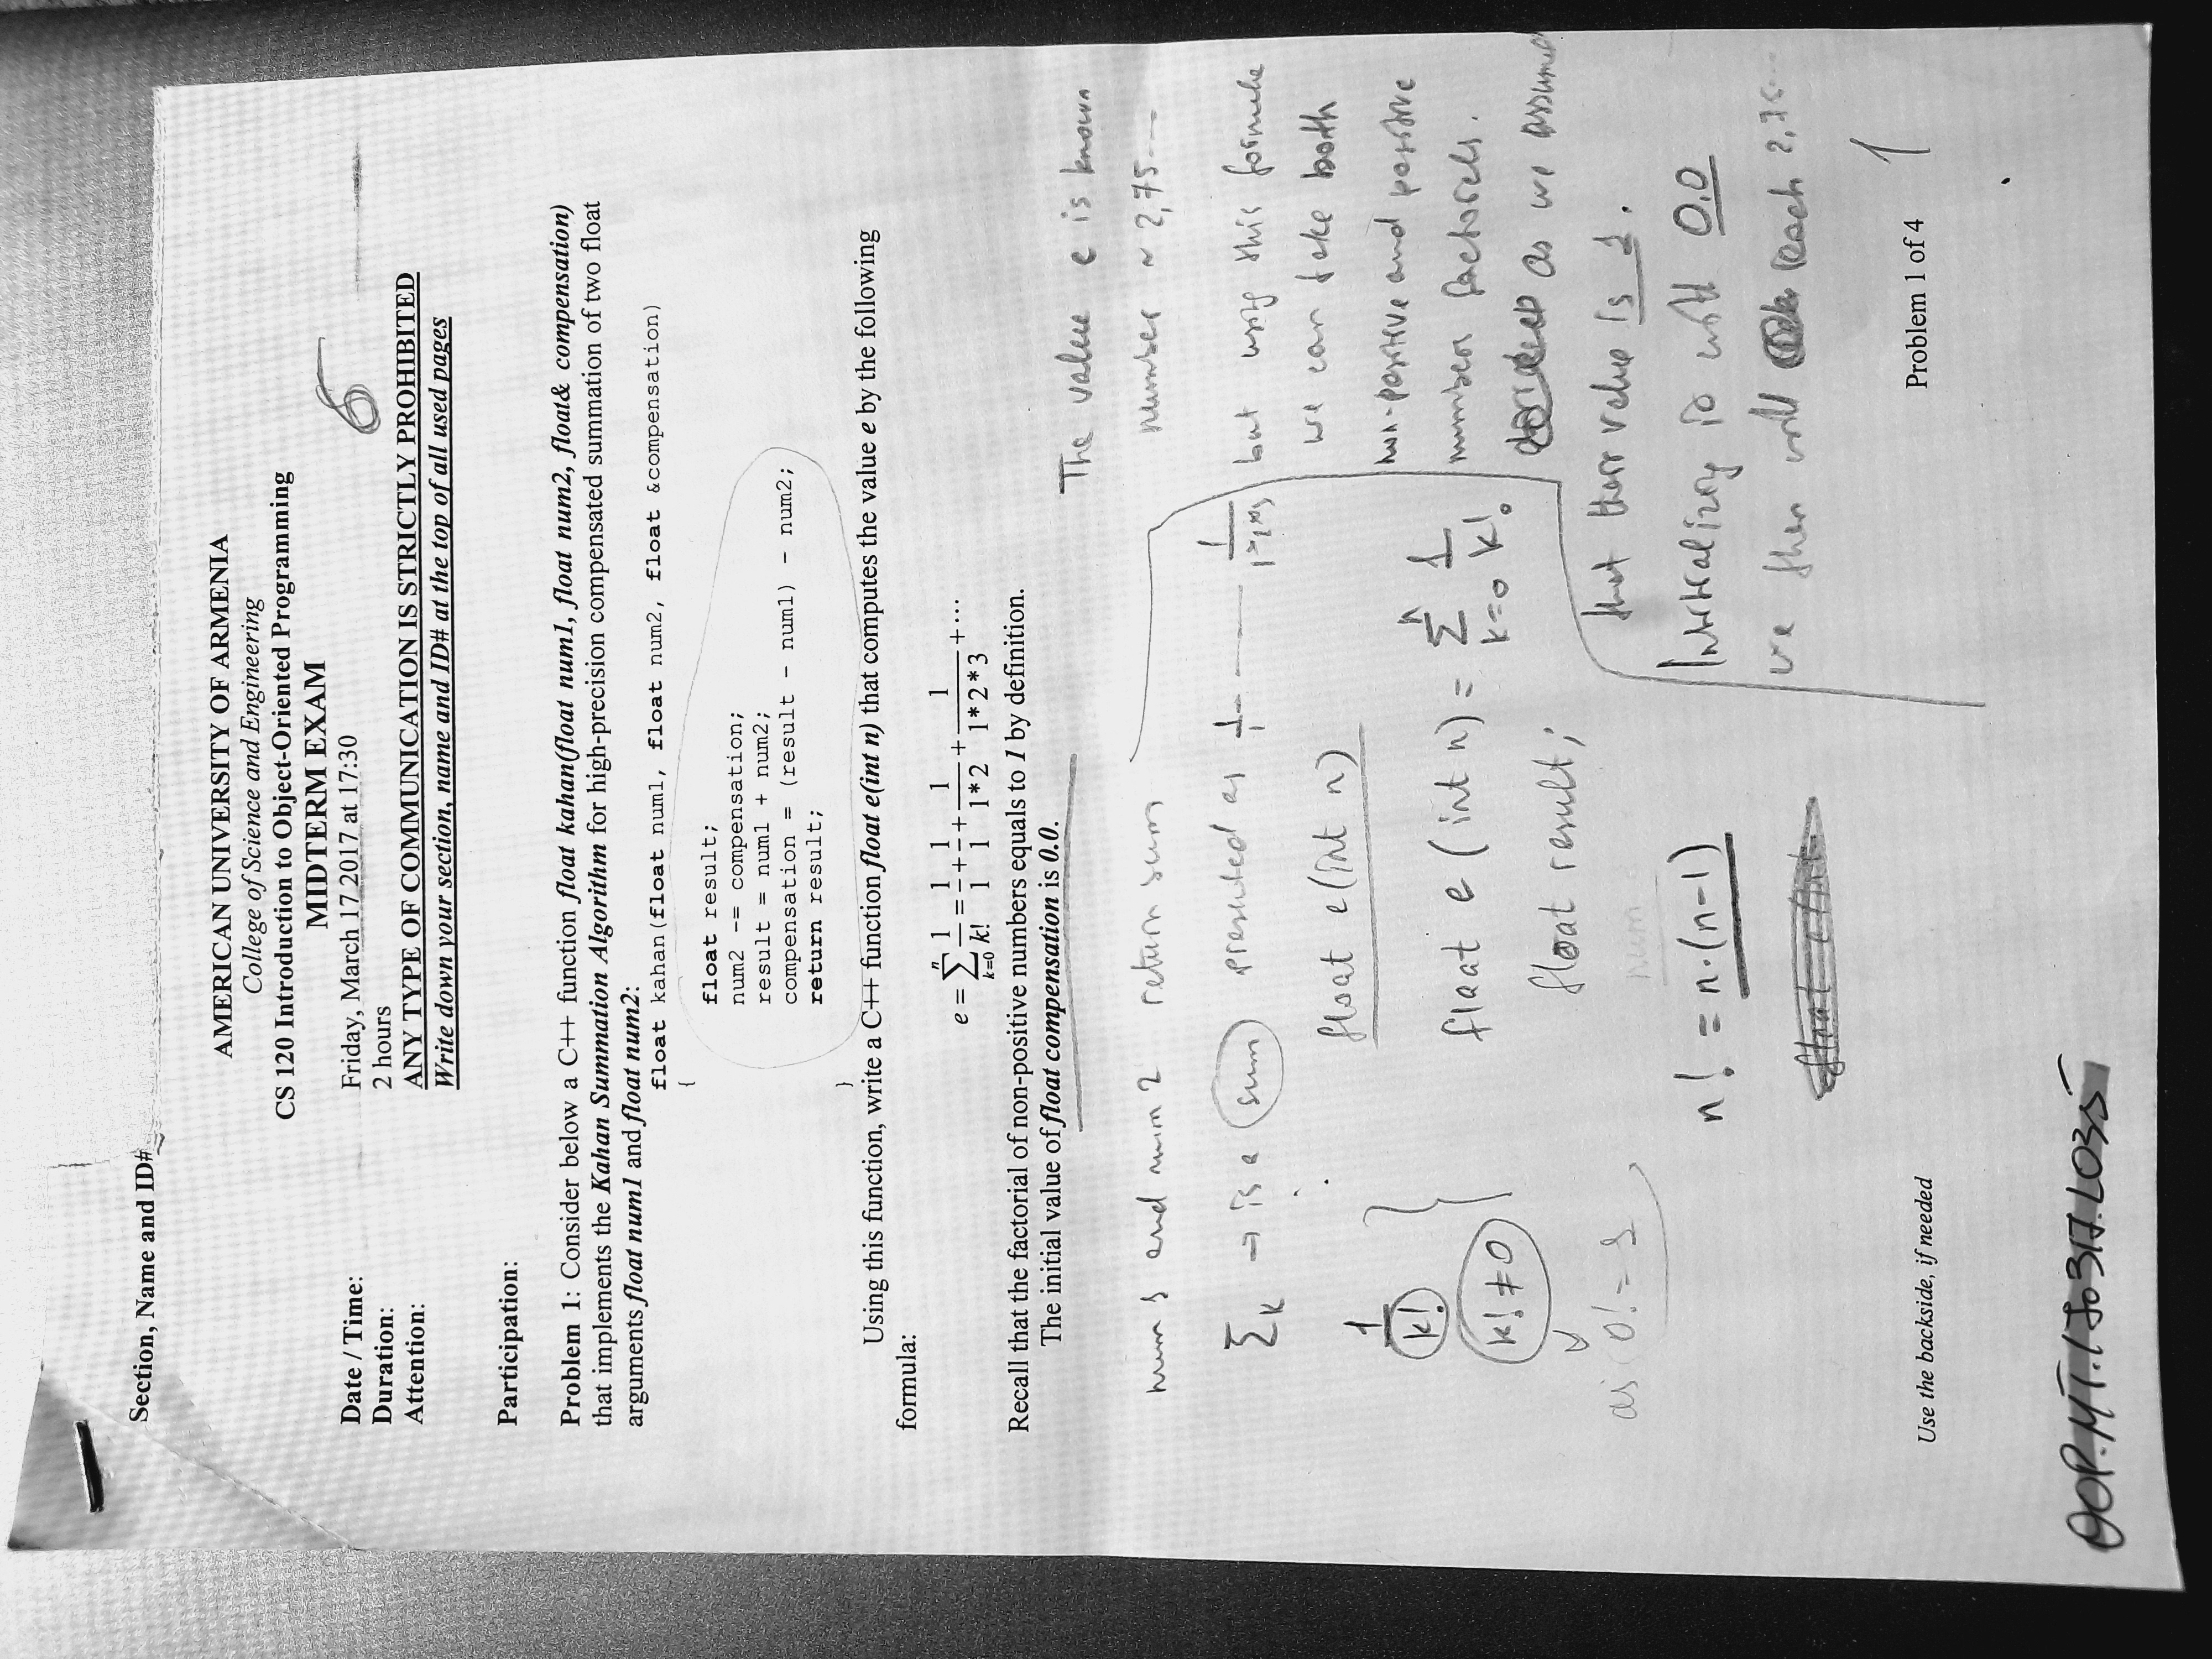 Section, Name and ID#
AMERICAN UNIVERSITY OF ARMENIA
College of Science and Engineering
CS 120 Introduction to Object-Oriented Programming
MIDTERM EXAM
Date / Time: Friday, March 17 2017 at 17:30
Duration: 2 hours
Attention: ANY TYPE OF COMMUNICATION IS STRICTLY PROHIBITED
Write down your section, name and ID# at the top of all used pages
Participation:
Problem 1: Consider below a C++ function float kahan(float num1, float num2, float& compensation)
that implements the Kahan Summation Algorithm for high-precision compensated summation of two float
arguments float num1 and float num2:
float kahan(float num1, float num2, float &compensation)
{
float result;
num2 -= compensation;
result = num1 + num2;
compensation = (result - num1) - num2;
return result;
}
Using this function, write a C++ function float e(int n) that computes the value e by the following
formula:
e = ∑ₖ₌₀ⁿ 1/k! = 1/1 + 1/1 + 1/1*2 + 1/1*2*3 + ⋯
Recall that the factorial of non-positive numbers equals to 1 by definition.
The initial value of float compensation is 0.0.
num 1 and num 2 return sum
∑k → is a sum presented as 1/1 — 1/1*2*3
1/k!
k! ≠ 0
as 0! = 1
float e(int n)
float e (int n) = ∑ₖ₌₀ⁿ 1/k!
float result;
num
n! = n·(n-1)
float e(int
The value e is known
number ~ 2,75...
but using this formula
we can take both
non-positive and positive
numbers factorels.
as we assumed
that their value is 1.
Initializing it with 0.0
we then will reach 2,75...
Use the backside, if needed
Problem 1 of 4
1
OOP.MT.170317.L035